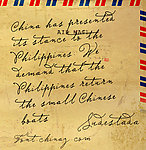 China has presented
its stance to the
AIR MAIL
Philippines We
demand that the
Philippines return
the small Chinese
boats
Judestada
Font.chinaz.com